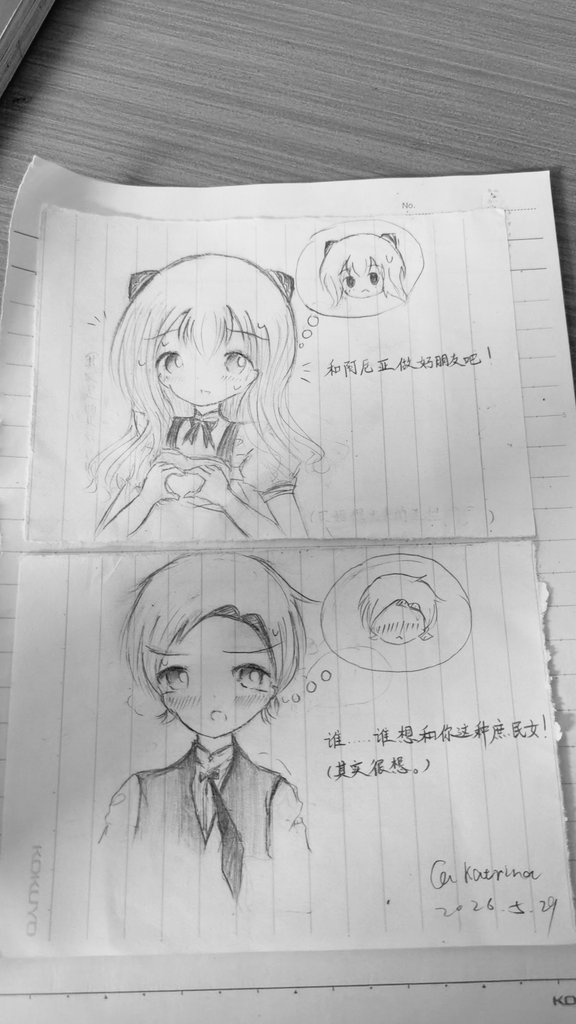 No.
和阿尼亚做好朋友吧！
谁……谁想和你这种庶民交！
(其实很想。)
Katrina
2026.5.29
KOKUYO
KO